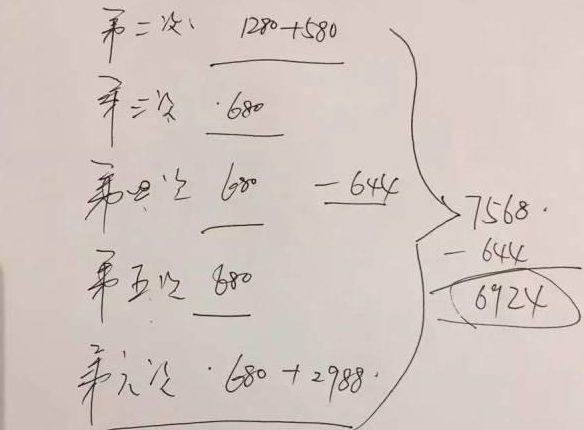 第二次: 1280+580
第三次 680
第四次 680 -644
第五次 680
第六次 680+2988.
7568.
-644
6924